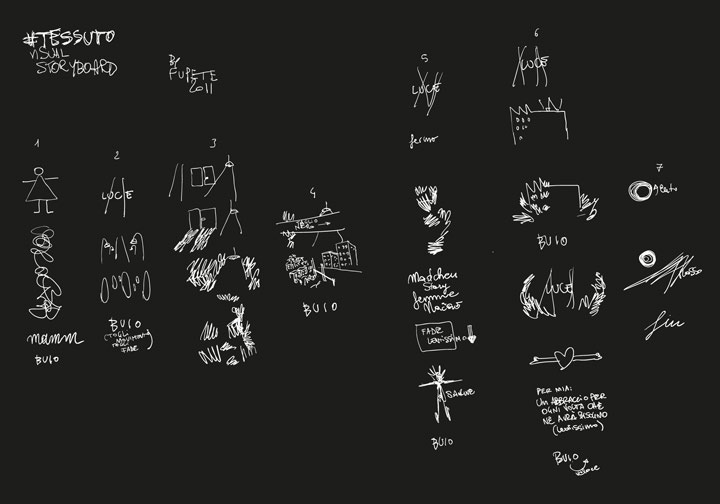 #TESSUTO
VISUAL
STORYBOARD
BY
FUPETE
2011
1
mamma
BUIO
2
LUCE
BUIO
(TOGLI
MOVIMENTO
FADE
3
4
BUIO
5
LUCE
fermo
Mädchen
Story
femme
FADE
LENTISSIMO
SANGUE
BUIO
6
LUCE
BUIO
LUCE
PER MIA:
UN ABBRACCIO PER
OGNI VOLTA CHE
NE AVRAI BISOGNO
(lentissimo)
BUIO
7